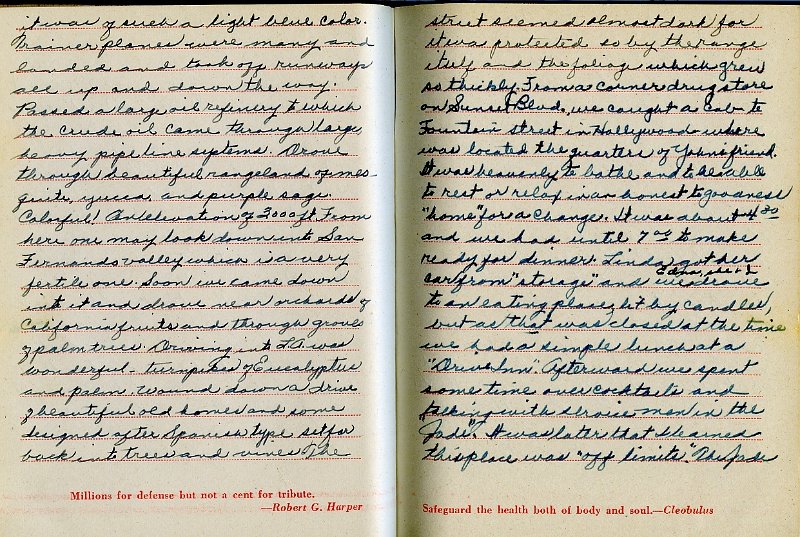 it was of such a light blue color.
Trainer planes were many and
landed and took off runways
all up and down the way.
Passed a large oil refinery to which
the crude oil came through large,
heavy pipe line systems. Drove
through beautiful rangeland of mes-
quite, yucca, and purple sage.
Colorful! An elevation of 3000 ft. From
here one may look down into San
Fernando valley which is a very
fertile one. Soon we came down
into it and drove near orchards of
California fruits and through groves
of palm trees. Driving into L.A. was
wonderful - turnpikes of Eucalyptus
and palm. Wound down a drive
of beautiful old homes and some
designed after Spanish type set far
back into trees and vines. The
Millions for defense but not a cent for tribute.
—Robert G. Harper
street seemed almost dark for
it was protected so by the range
itself and the foliag which grew
so thickly. From a corner drug store
on Sunset Blvd. we caught a cab to
Fountain street in Hollywood where
was located the quarters of John's friend.
It was heavenly to bathe and to be able
to rest or relax in an honest to goodness
"home" for a change. It was about 4 30
and we had until 7 00 to make
ready for dinner. Linda got her
car from "storage" and Edna, she & I we drove
to an eating place, lit by candles,
but as that was closed at the time
we had a simple lunch at a
"Drive Inn". Afterward we spent
some time over cocktails and
talking with service men in the
"Jade". It was later that I learned
this place was "off limits." The Jade
Safeguard the health both of body and soul.—Cleobulus